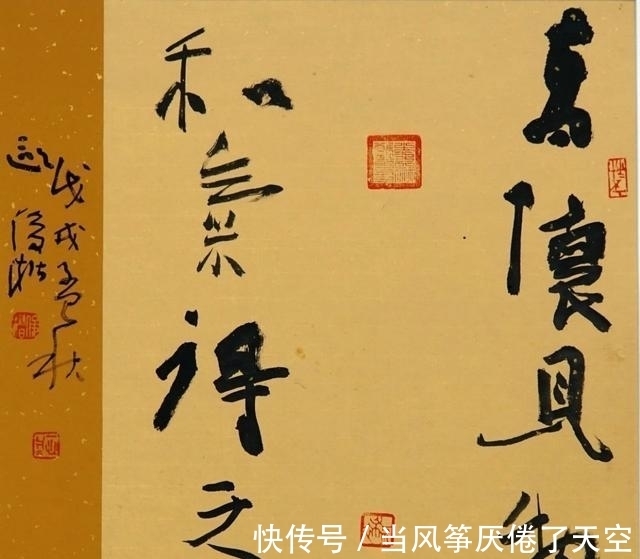 高懷見物
和氣得天
戊戌孟秋
快传号 / 当风筝厌倦了天空